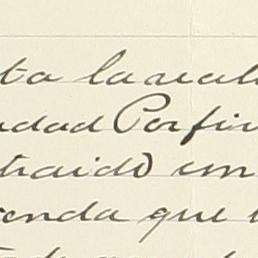 ta la reali
udad Porfir
traido un
enda que